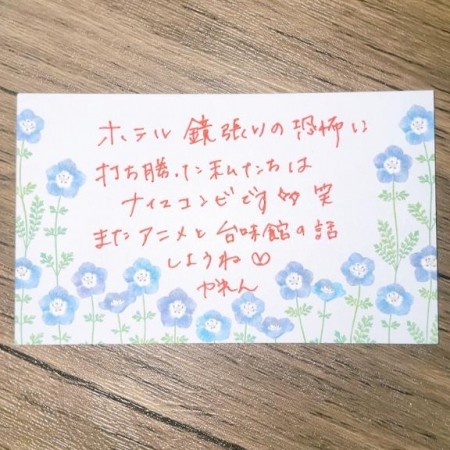 ホテル 鏡張りの恐怖に
打ち勝った私たちは
ナイスコンビです 笑
またアニメと台味館の話
しようね♡
かれん